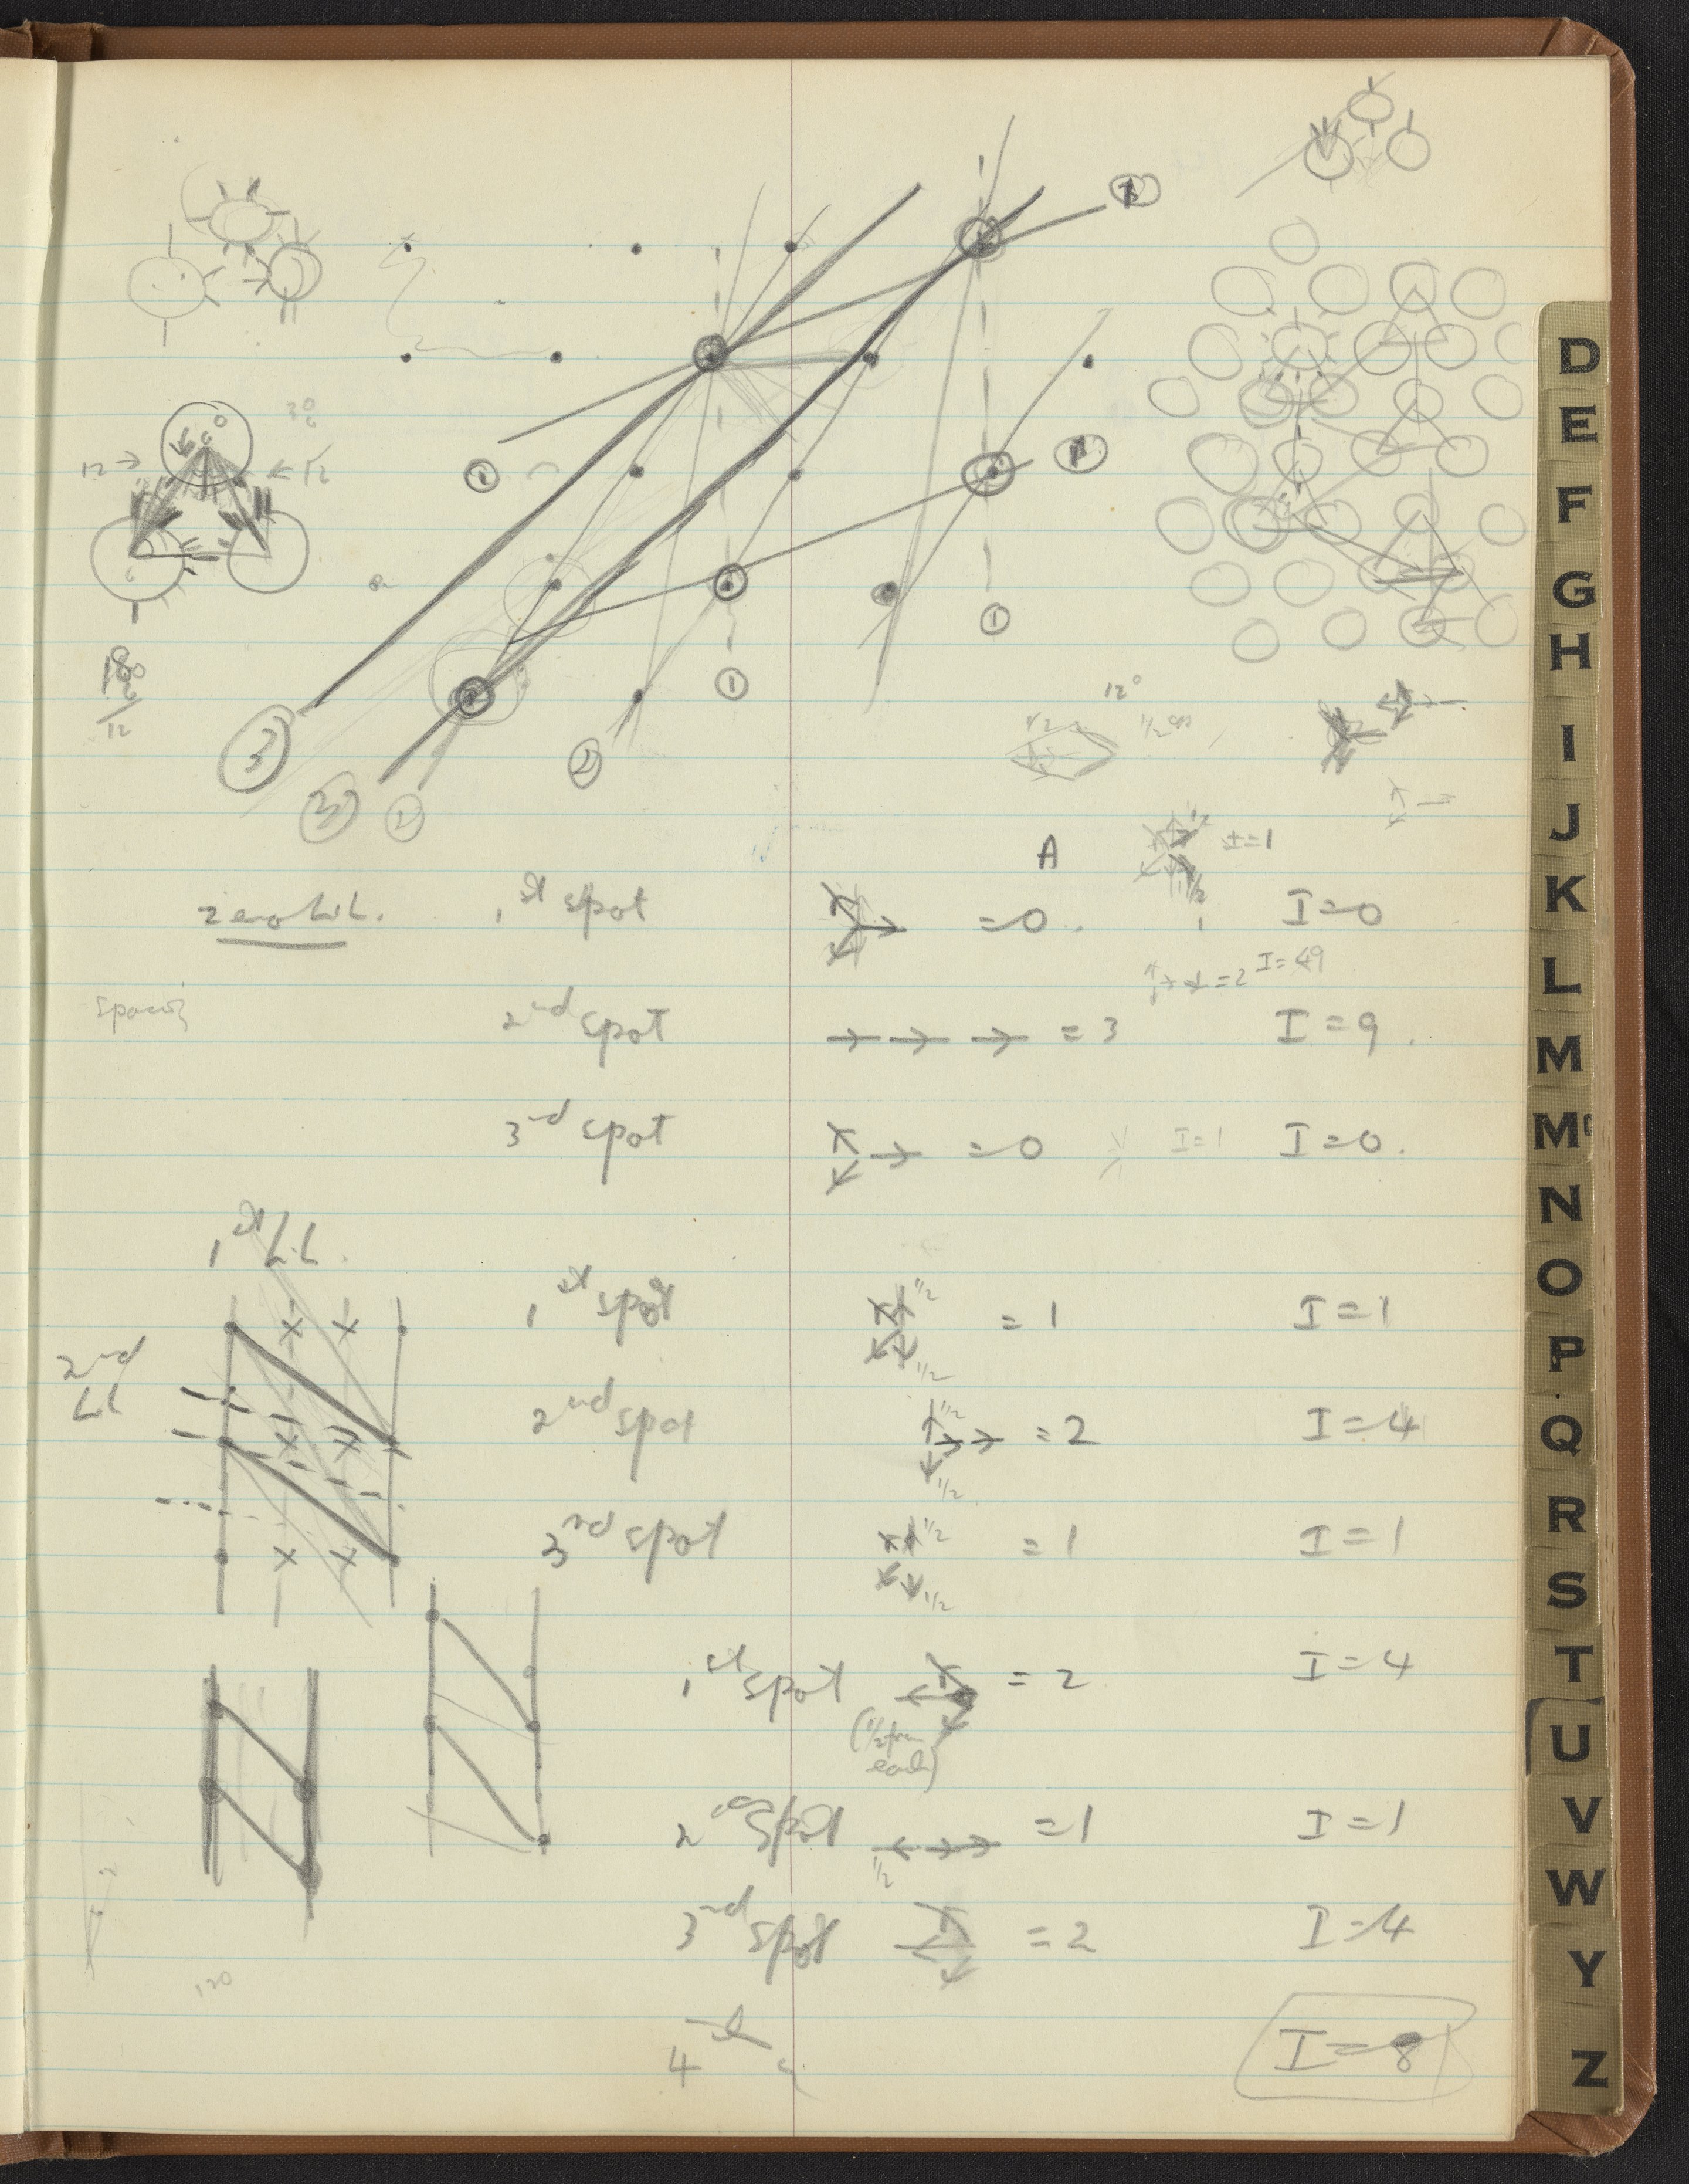 1
12
12
180
12
1
1
1
3
3
2
2
12°
1/2
A
I=1
zero L.L. 1st spot =0. I=0
=2 I=49
2nd spot → → → = 3 I=9.
3rd spot → =0 I=1 I=0.
1st L.L.
1st spot 1/2 1/2 = 1 I=1
2nd
LL
2nd spot 1/2 →→ 1/2 = 2 I=4
3rd spot 1/2 1/2 = 1 I=1
1st spot = 2 I=4
(1/2 from
each)
2nd spot 1/2 ←→→ =1 I=1
3rd spot = 2 I=4
120
4th I=8
D
E
F
G
H
I
J
K
L
M
Mc
N
O
P
Q
R
S
T
U
V
W
Y
Z